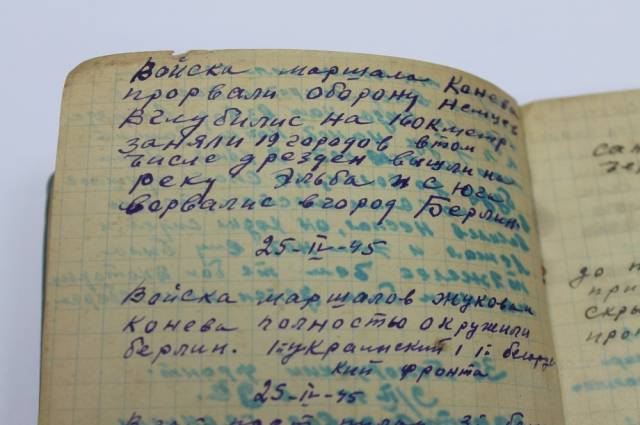 Войска маршала Конева
прорвали оборону немцев
Вглубилис на 160 кметр
заняли 19 городов втом
числе дрезден вышли на
реку Эльба и с юга
ворвалис вгород Берлин.
25-IV-45
Войска маршалов жукова и
конева полностью окружили
берлин. 1й украинский 1й белорус
кий фронта
25-IV-45
до
при
скры